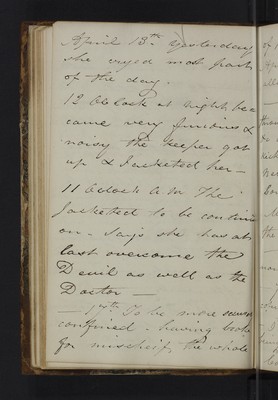 April 13th Yesterday
she urged most part
of the day.
12 Oclock at night be=
came very furious &
noisy the keeper got
up & Jacketed her—
11 Oclock A.M. The
Jacketed to be continu
on - Says she has at
last overcome the
Devil as well as the
Doctor —
— 17th To be more secure
confined - having broke
for mischief, the whole